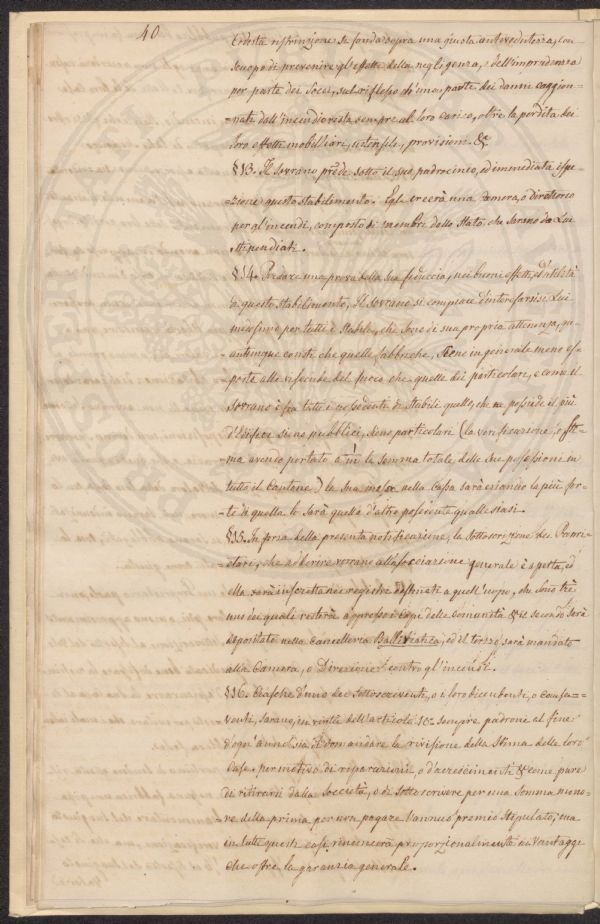 40
Codesta ristrinzione si fonda sopra una giusta antivedutezza, con
scuopo di prevenire gl'effetti della negligenza, e dell'imprudenza
per parte dei Socci, sul riflesso ch'una parte dei danni caggion=
=nati dall'incendio resta sempre al loro carico, oltre la perdita dei
loro effetti mobilliari, ustensili, provisioni. &c.
§13. Il Sovrano prède sotto il suo padrocinio, ed immediata ispe=
=zione questo stabilimento. Egli creerà una Camera, o direttorio
per gl'incendi, composto di membri dello Stato, che sarano da Lui
stipendiati.
§14. Per dare una prova della sua fiduccia, nei buoni effetti, ed utilità
di questo stabilimento, Il Sovrano si compiace d'interessarsi Lui
medesimo per tutti i Stabili, che sono di sua propria attinenza, qu=
=antunque consti che quelle fabbriche, sieno in generale meno es=
=poste alle vicende del fuoco che quelle dei particolari, e come il
Sovrano è fra tutti i possidenti di stabili quello, che ne possiede il più
d'Edifici siano pubblici, siano particolari (la verificazione, e sti=
=ma avendo portato a in la somma totale delle sue possessioni in
tutto il Cantone) la sua messa nella Cassa sarà eziandio la più for=
=te di quella lo sarà quella d'altro possidente qualle siasi.
§15. In forza della presente notificazione, la sottoscrizione dei Proprie=
=tari, che adherire vorrano all'associazione generale è aperta, ed
ella sarà inscritta nei registri destinati a quell'uopo, che sono trè
uno dei quali resterà appresso i capi delle Comunità & il secondo sarà
depositato nella Cancelleria Ballivatica, ed il terzo sarà mandato
alla Camera, o Direzione contro gl'incendi.
§16. Ciasche d'uno dei sottoscriventi, o i loro discendenti, o consu=
=venti, sarano, in virtù dell'articolo 10 sempre padroni al fine
d'ogn'anno, sia di domandare la rivisione della Stima delle loro
Case per motivo di riparazioni, o d'accrescimenti & come pure
di ritirarsi dalla Soccietà, o di sottoscrivere per una somma mino=
=re della prima per ivi pagare l'annuo premio stipulato; ma
in tutti questi casi rinuncerà proporzionalmente ai vantaggi
che offre la garanzia generale.